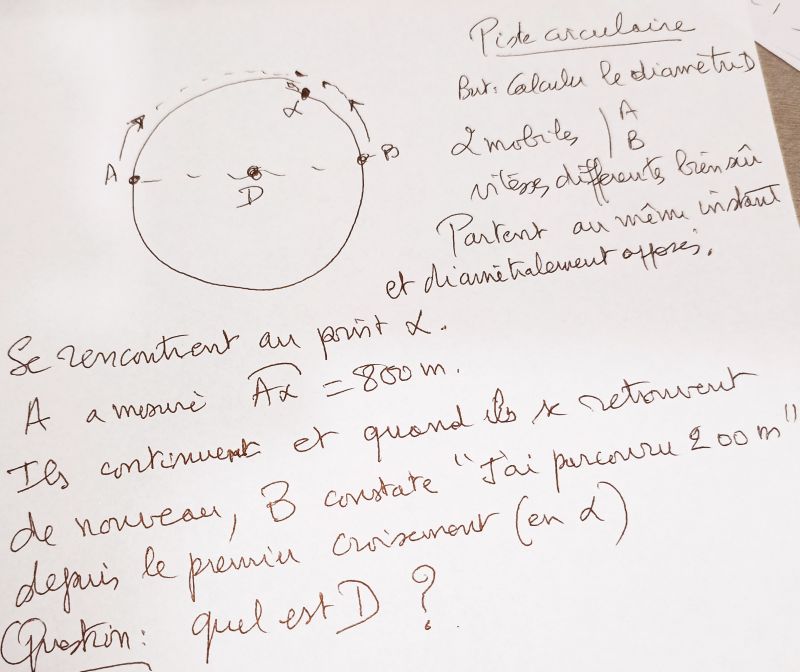 Piste circulaire
But: Calculer le diamètre D
2 mobiles
A
B
vitesses différentes bien sûr
Partent au même instant
et diamétralement opposés.
A
B
α
D
Se rencontrent au point α.
A a mesuré Aα = 800 m.
Ils continuent et quand ils se retrouvent
de nouveau, B constate "J'ai parcouru 200 m"
depuis le premier croisement (en α)
Question: quel est D ?